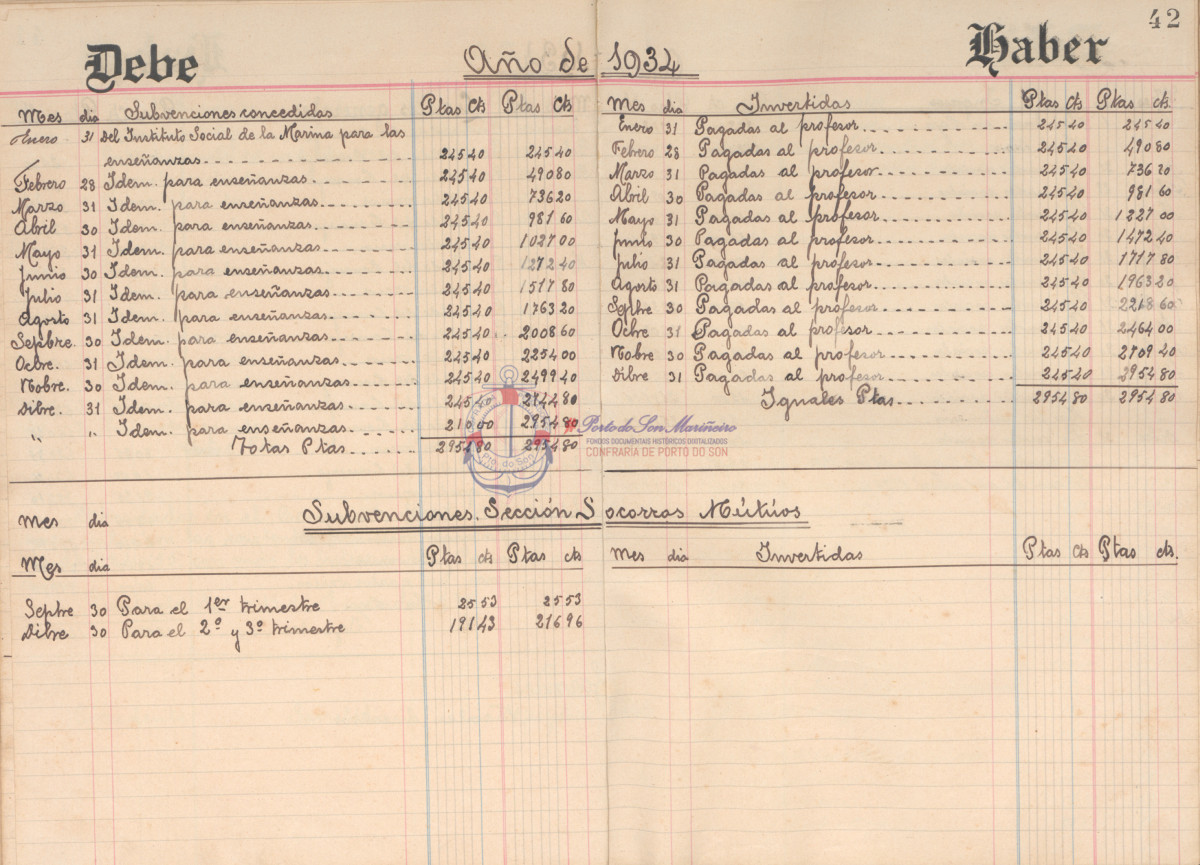 42
Debe
Año de 1934
Haber
Mes dia Subvenciones concedidas Ptas Cts Ptas Cts
Enero 31 Del Instituto Social de la Marina para las
enseñanzas 245 40 245 40
Febrero 28 Idem. para enseñanzas 245 40 490 80
Marzo 31 Idem. para enseñanzas 245 40 736 20
Abril 30 Idem. para enseñanzas 245 40 981 60
Mayo 31 Idem. para enseñanzas 245 40 1027 00
Junio 30 Idem. para enseñanzas 245 40 1272 40
Julio 31 Idem. para enseñanzas 245 40 1517 80
Agosto 31 Idem. para enseñanzas 245 40 1763 20
Sepbre. 30 Idem. para enseñanzas 245 40 2008 60
Ocbre. 31 Idem. para enseñanzas 245 40 2254 00
Nobre. 30 Idem. para enseñanzas 245 40 2499 40
Dibre. 31 Idem. para enseñanzas 245 40 2744 80
" " Idem. para enseñanzas 210 00 2954 80
Totas Ptas 2954 80 2954 80
Mes dia Invertidas Ptas Cts Ptas cts.
Enero 31 Pagadas al profesor 245 40 245 40
Febrero 28 Pagadas al profesor 245 40 490 80
Marzo 31 Pagadas al profesor 245 40 736 20
Abril 30 Pagadas al profesor 245 40 981 60
Mayo 31 Pagadas al profesor 245 40 1227 00
Junio 30 Pagadas al profesor 245 40 1472 40
Julio 31 Pagadas al profesor 245 40 1717 80
Agosto 31 Pagadas al profesor 245 40 1963 20
Sptbre 30 Pagadas al profesor 245 40 2218 60
Ocbre 31 Pagadas al profesor 245 40 2464 00
Nobre 30 Pagadas al profesor 245 40 2709 40
Dibre 31 Pagadas al profesor 245 40 2954 80
Iguales Ptas 2954 80 2954 80
Porto do Son Mariñeiro
FONDOS DOCUMENTAIS HISTÓRICOS DIGITALIZADOS
CONFRARIA DE PORTO DO SON
Mes dia Subvenciones. Sección Socorros Mútuos
Mes dia Ptas cts Ptas cts
Septre 30 Para el 1er trimestre 25 53 25 53
Dibre 30 Para el 2º y 3º trimestre 191 43 216 96
Mes dia Invertidas Ptas Cts Ptas cts.